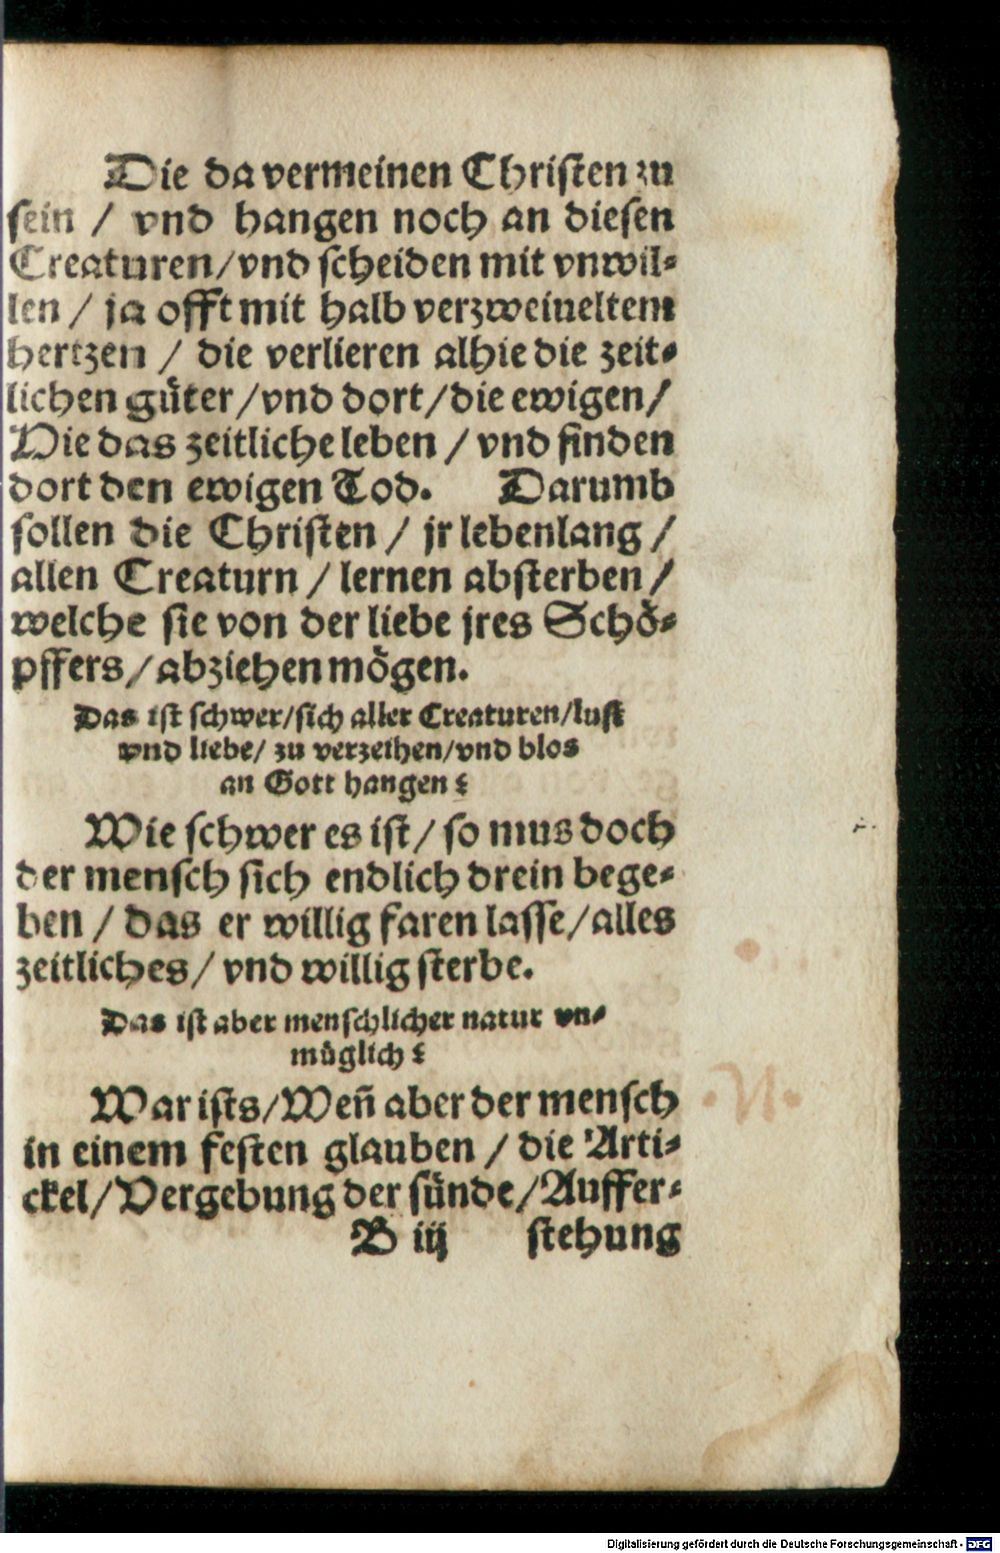 Die da vermeinen Christen zu
sein / vnd hangen noch an diesen
Creaturen/vnd scheiden mit vnwil-
len / ja offt mit halb verzweiueltem
hertzen / die verlieren alhie die zeit-
lichen güter/vnd dort/die ewigen/
Hie das zeitliche leben / vnd finden
dort den ewigen Tod. Darumb
sollen die Christen / jr lebenlang /
allen Creaturn / lernen absterben/
welche sie von der liebe jres Schö-
pffers/abziehen mögen.
Das ist schwer/sich aller Creaturen/lust
vnd liebe/ zu verzeihen/vnd blos
an Gott hangen?
Wie schwer es ist/ so mus doch
der mensch sich endlich drein bege-
ben / das er willig faren lasse/alles
zeitliches/ vnd willig sterbe.
Das ist aber menschlicher natur vn-
müglich?
War ists/Weñ aber der mensch
in einem festen glauben / die Arti-
ckel/Vergebung der sünde/Auffer-
B iij stehung
Digitalisierung gefördert durch die Deutsche Forschungsgemeinschaft - DFG